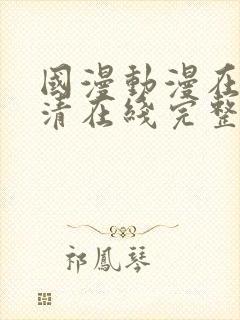 國漫動漫在
清在綫完整
祁鳳琴